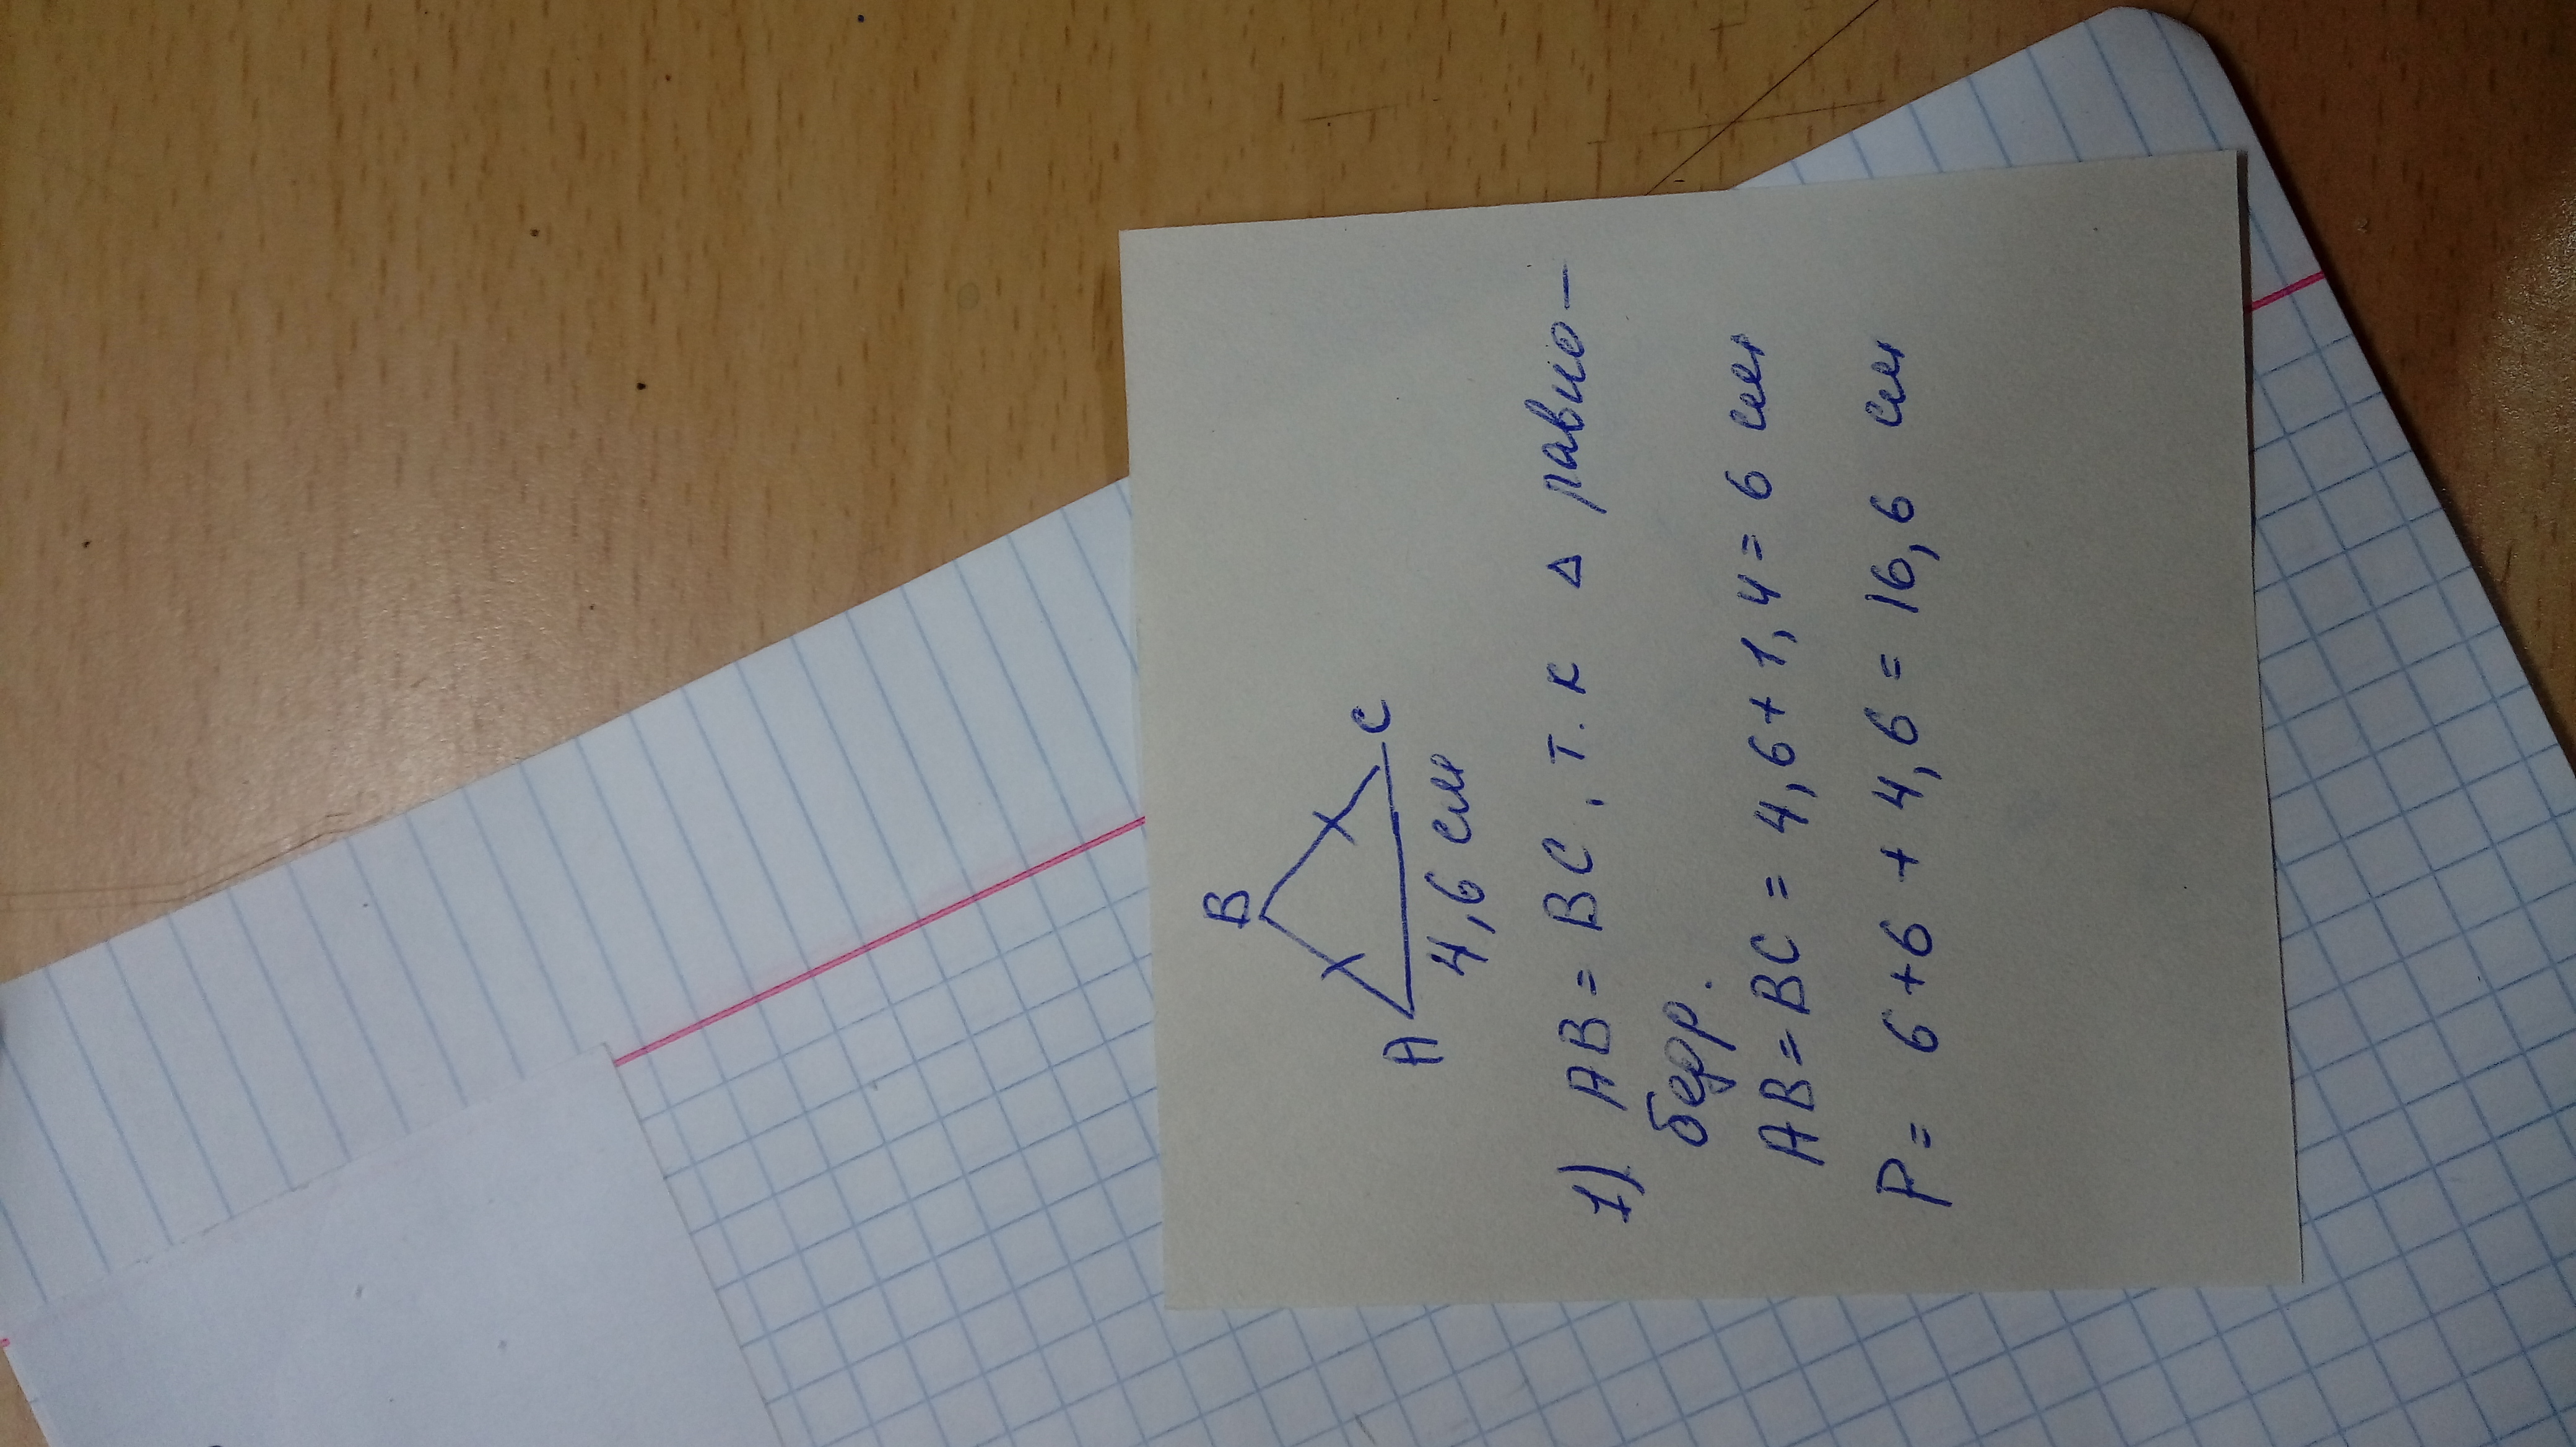 B
A C
4,6 см
1) AB = BC, т.к Δ равно-
бедр.
AB = BC = 4,6 + 1,4 = 6 см
P = 6 + 6 + 4,6 = 16,6 см